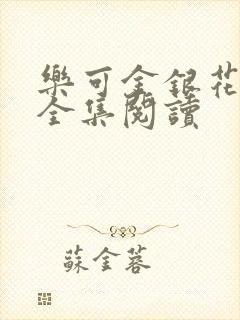 樂可金銀花
全集閱讀
蘇金蓉